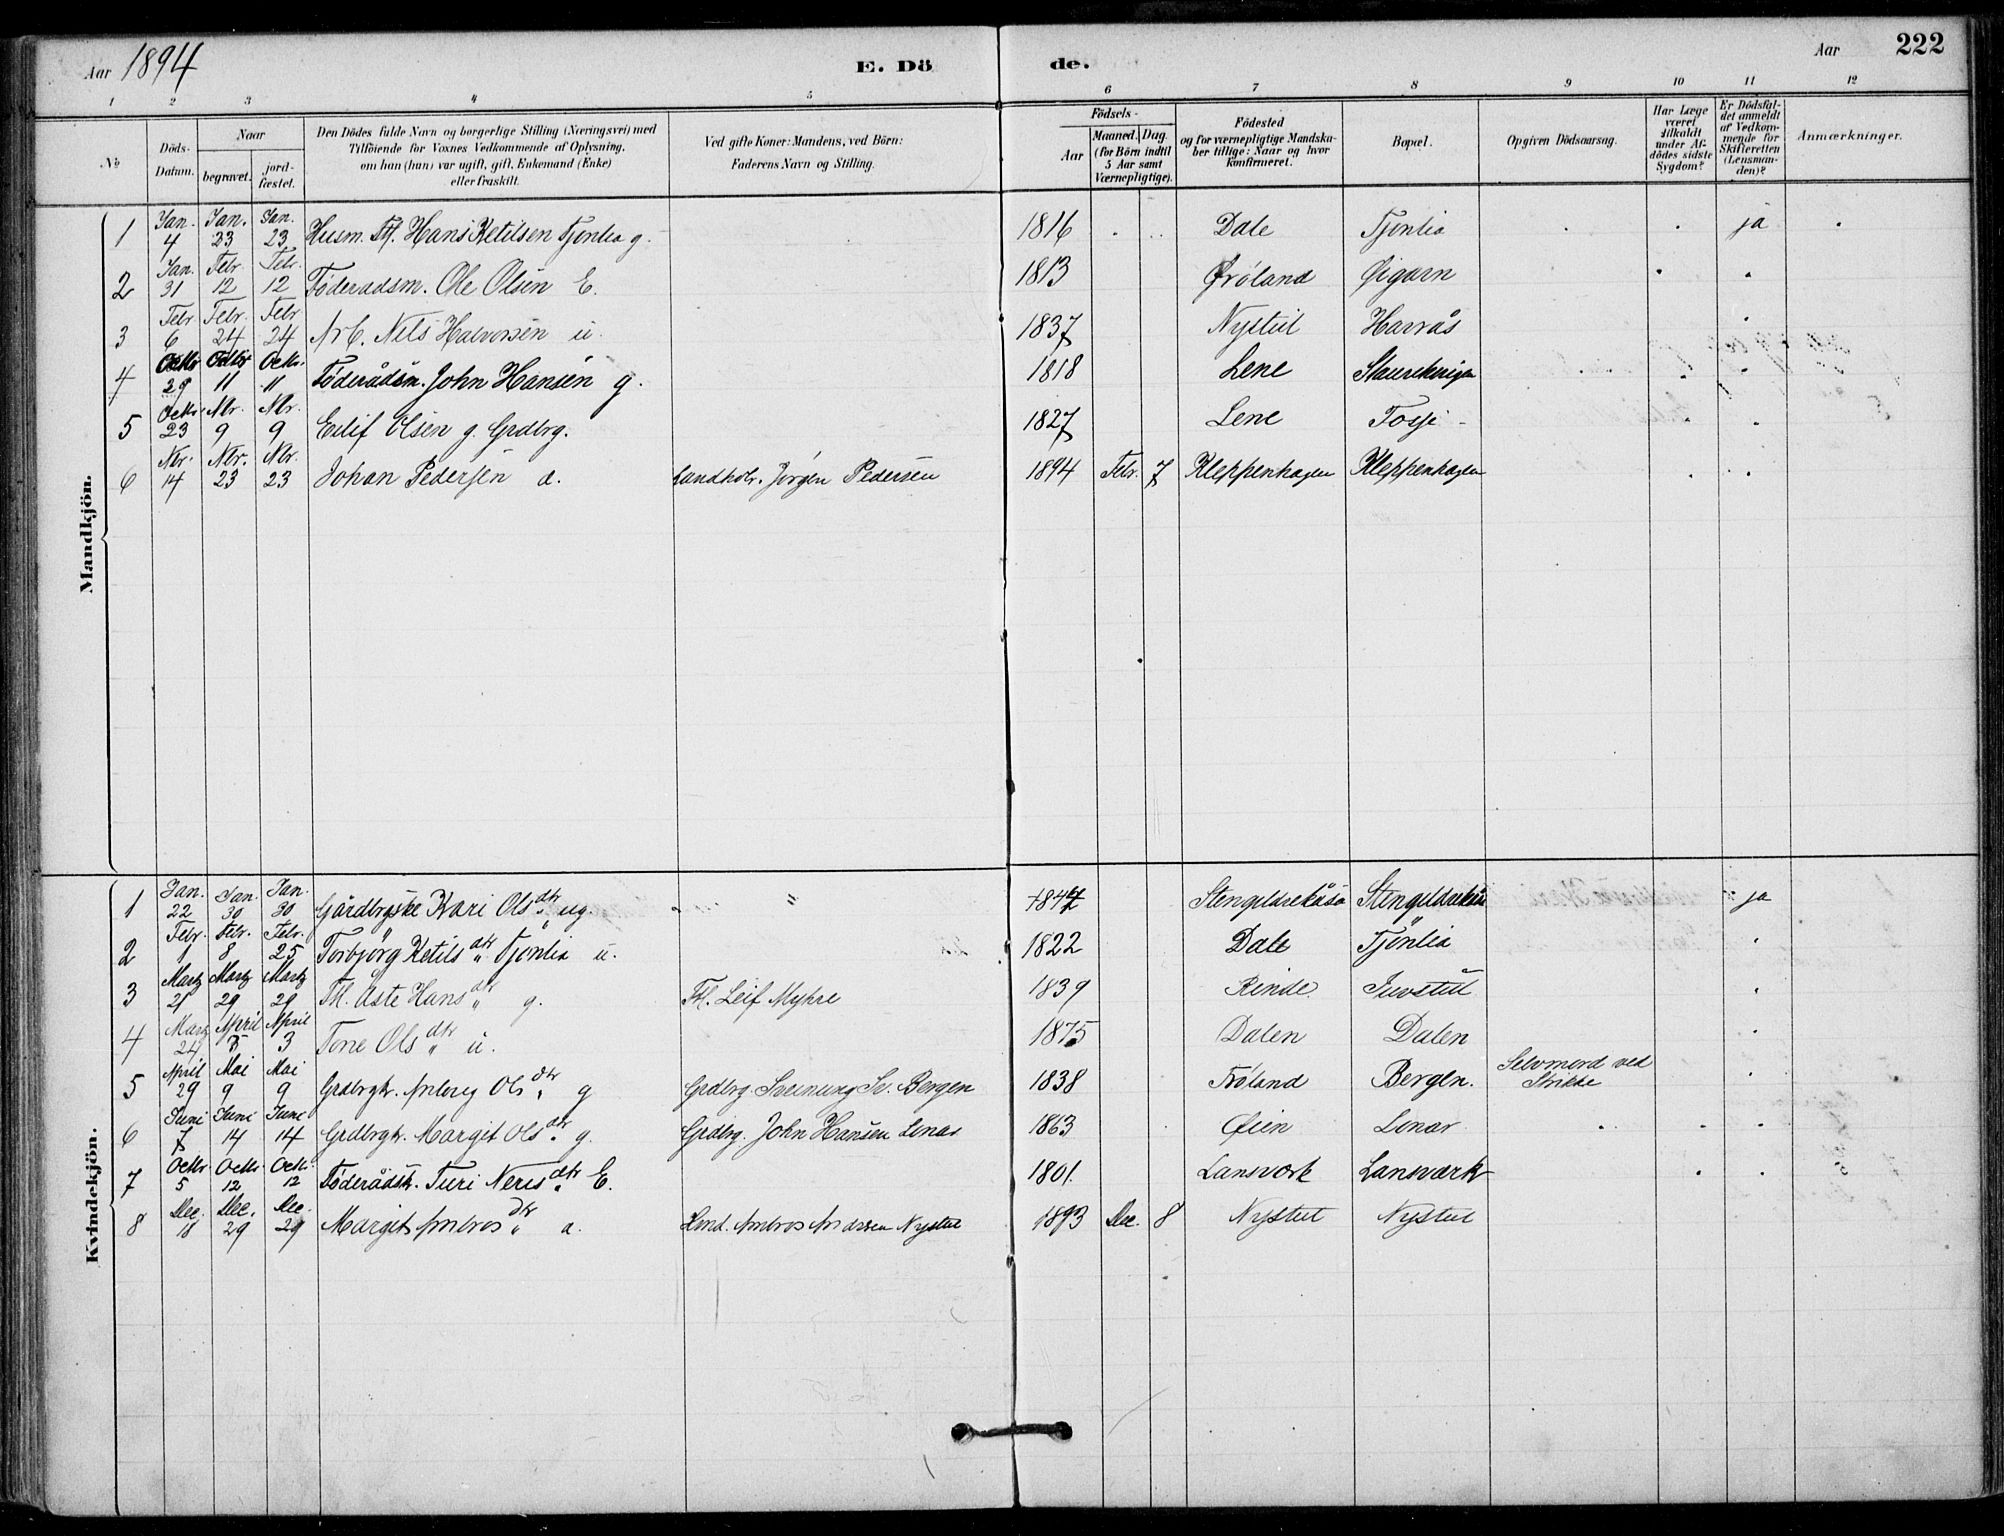 Aar 1894 E. Dö de. Aar 222
1 2 3 4 5 6 7 8 9 10 11 12
No
Döds-Datum.
Naar
begravet. jordfæstet.
Den Dödes fulde Navn og borgerlige Stilling (Næringsvei) med
Tilföiende for Voxnes Vedkommende af Oplysning,
om han (hun) var ugift, gift, Enkemand (Enke)
eller fraskilt.
Ved gifte Koner: Mandens, ved Börn:
Faderens Navn og Stilling.
Födsels-
Aar
Maaned. Dag.
(for Börn indtil
5 Aar samt
Værnepligtige).
Födested
og for værnepligtige Mandska-
ber tillige: Naar og hvor
konfirmeret.
Bopæl.
Opgiven Dödsaarsag.
Har Læge
været
tilkaldt
under Af-
dödes sidste
Sygdom?
Er Dödsfal-
det anmeldt
af Vedkom-
mende for
Skifteretten
(Lensman-
den)?
Anmærkninger.
Mandkjön.
1 Jan. 4 Jan. 23 Jan. 23 Husm. Fl. Hans Ketilsen Tjønlia g. 1816 Dale Tjønlia ja
2 Jan. 31 Febr. 12 Febr. 12 Føderadsm. Ole Olsen E. 1813 Øigarn
3 Febr 6 Febr. 24 Febr 24 Arb. Nels Halvorsen u. 1837 Nystul Harrås
4 Octbr 29 11 11 Føderådsm. John Hansen g. 1818 Lene
5 Octbr. 23 Nbr. 9 Nbr. 9 Eilif Olsen g. Grdbrg. 1827 Lene Tosje
6 Nbr. 14 Nbr. 23 Nbr. 23 Johan Pedersen a. Landhdr. Jørgen Pedersen 1894 Febr. 7 Kleppenhagen Kleppenhagen
Kvindekjön.
1 Jan. 22 Jan. 30 Jan. 30 Gårdbrgske Kari Olsdtr ug. 1847 ja
2 Febr. 1 Febr. 8 Febr. 25 Torbjørg Ketilsdtr Tjønlia u. 1822 Dale Tjønlia
3 Marts 21 Marts 29 Marts 29 Fl. Aste Hansdtr g. Fl. Leif Myhre 1839 Rinde Juvstul
4 Marts 24 April 3 April 3 Tone Olsdtr u. 1875 Dalen Dalen
5 April 29 Mai 9 Mai 9 Grdbrgk. Anberg Olsdtr g Grdbrg Sveinung Sv. Bergen 1838 Frøland Bergen. Selvmord ved
Strikke
6 Juni 7 Juni 14 Juni 14 Grdbrgk. Margit Olsdtr g. Grdbrg. John Hansen Lonar 1863 Øien Lonar
7 Octbr 5 Octbr. 12 Octbr. 12 Føderådsk. Turi Nerisdtr E. 1801. Lansverk Lansværk
8 Dec. 18 Dec. 29 Dec. 29 Margit Ambrosdtr a. Lmd. Ambros Andersen Nystul 1893 Dec. 8 Nystul Nystul